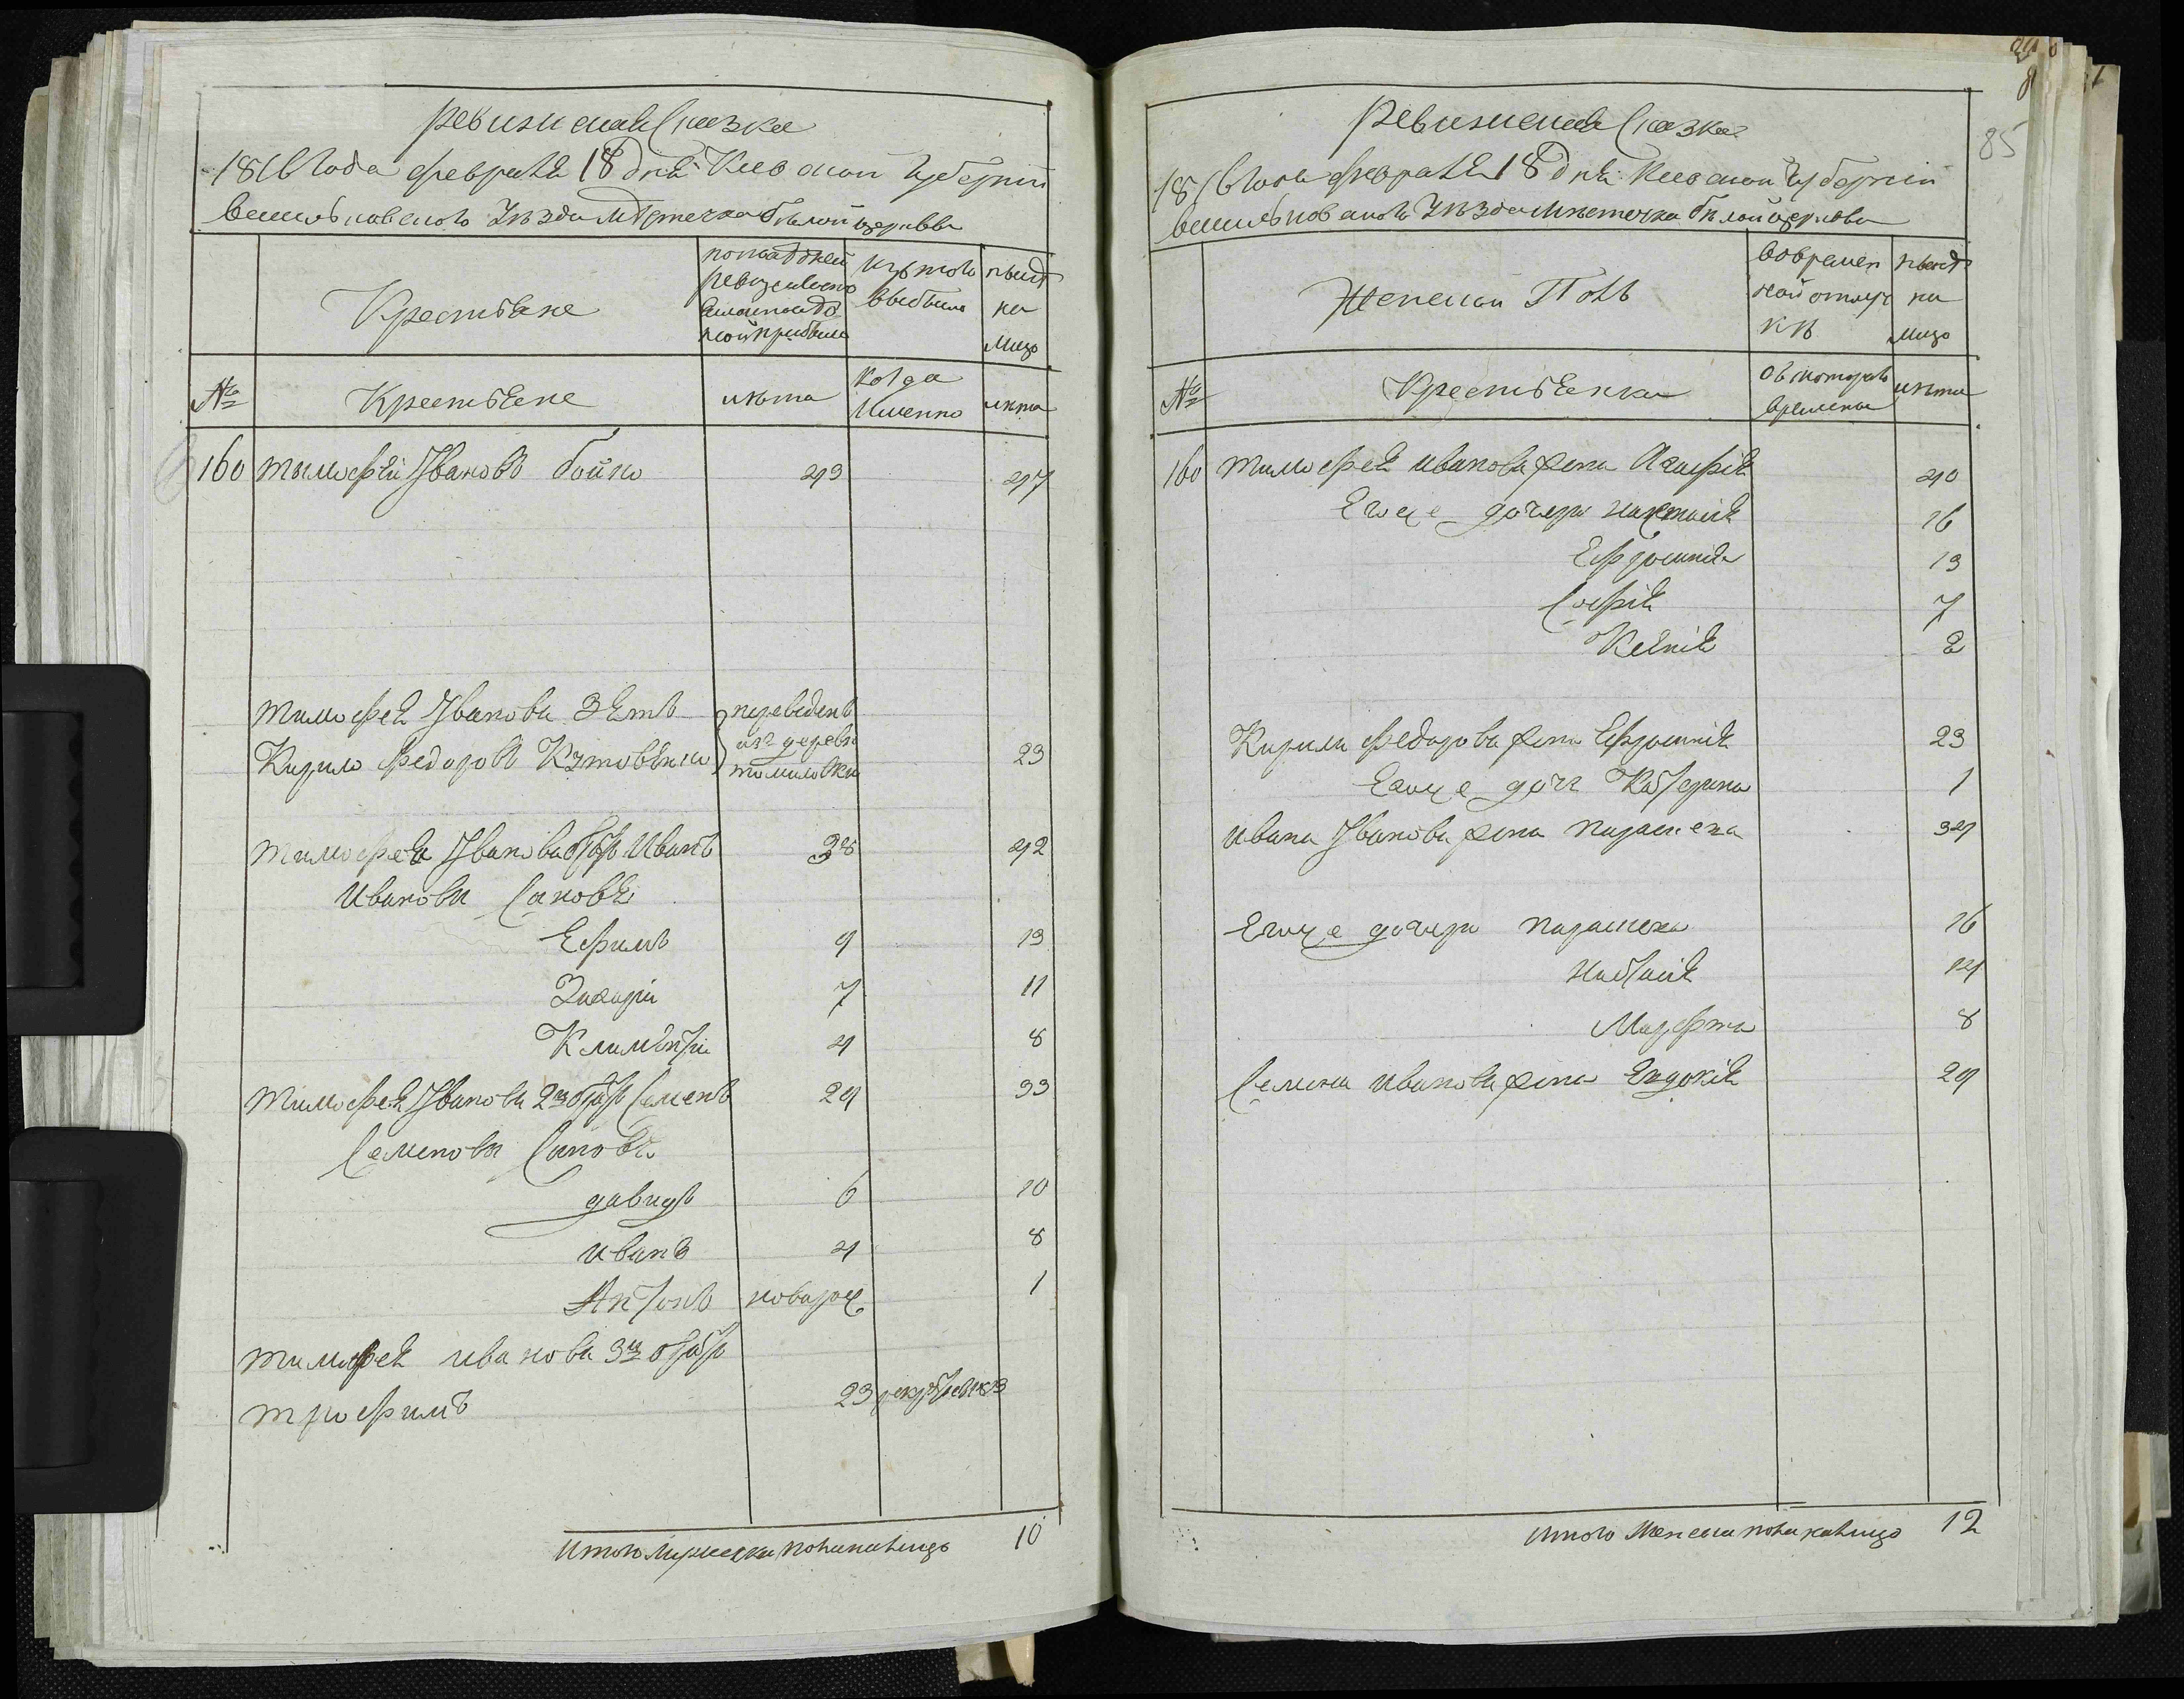 Ревизиская Сказка
1816 Года февраля 18 дня Киевской Губернїи
васильковского Уезда Местечка белой церквы
Крестьяне
по последней ревизии состояло и после той прибыло
Из того выбыло
ныне на лицо
№
Крестьяне
лета
когда Именно
лета
160 тимофей Ивановъ бойко 43 47
тимофея Иванова Зять
Кирило федоровъ переведенъ из деревни томиловки 23
тимофея Иванова братъ Иванъ 38 42
Иванова Сыновья
Ефимъ 9 13
Захарїй 7 11
Климентїй 4 8
тимофея Иванова 2й братъ Семенъ 29 33
Семенова Сыновья
давидъ 6 10
иванъ 4 8
Антонъ новорож 1
тимофея иванова 3й братъ
трофимъ 23 рекрутъ 1813
Итого мужеска пола налицо 10
85
Ревизиская Сказка
1816 Года февраля 18 дня Киевской Губернїи
васильковского Уезда местечка белой церквы
Женской Полъ
Во временной отлучке
ныне на лицо
№
Крестьянки
С которого времены
лета
160 тимофея иванова жена Агафїя 40
Егоже дочери настасїя 16
Ефросинїя 13
Софїя 7
Ксенїя 2
Кирила федорова жена Ефросинїя 23
Егоже дочь Катерина 1
ивана Иванова жена параскева 34
Егоже дочери параскева 16
настасїя 14
Марфта 8
Семена иванова жена Евдокїя 29
Итого Женска пола налицо 12